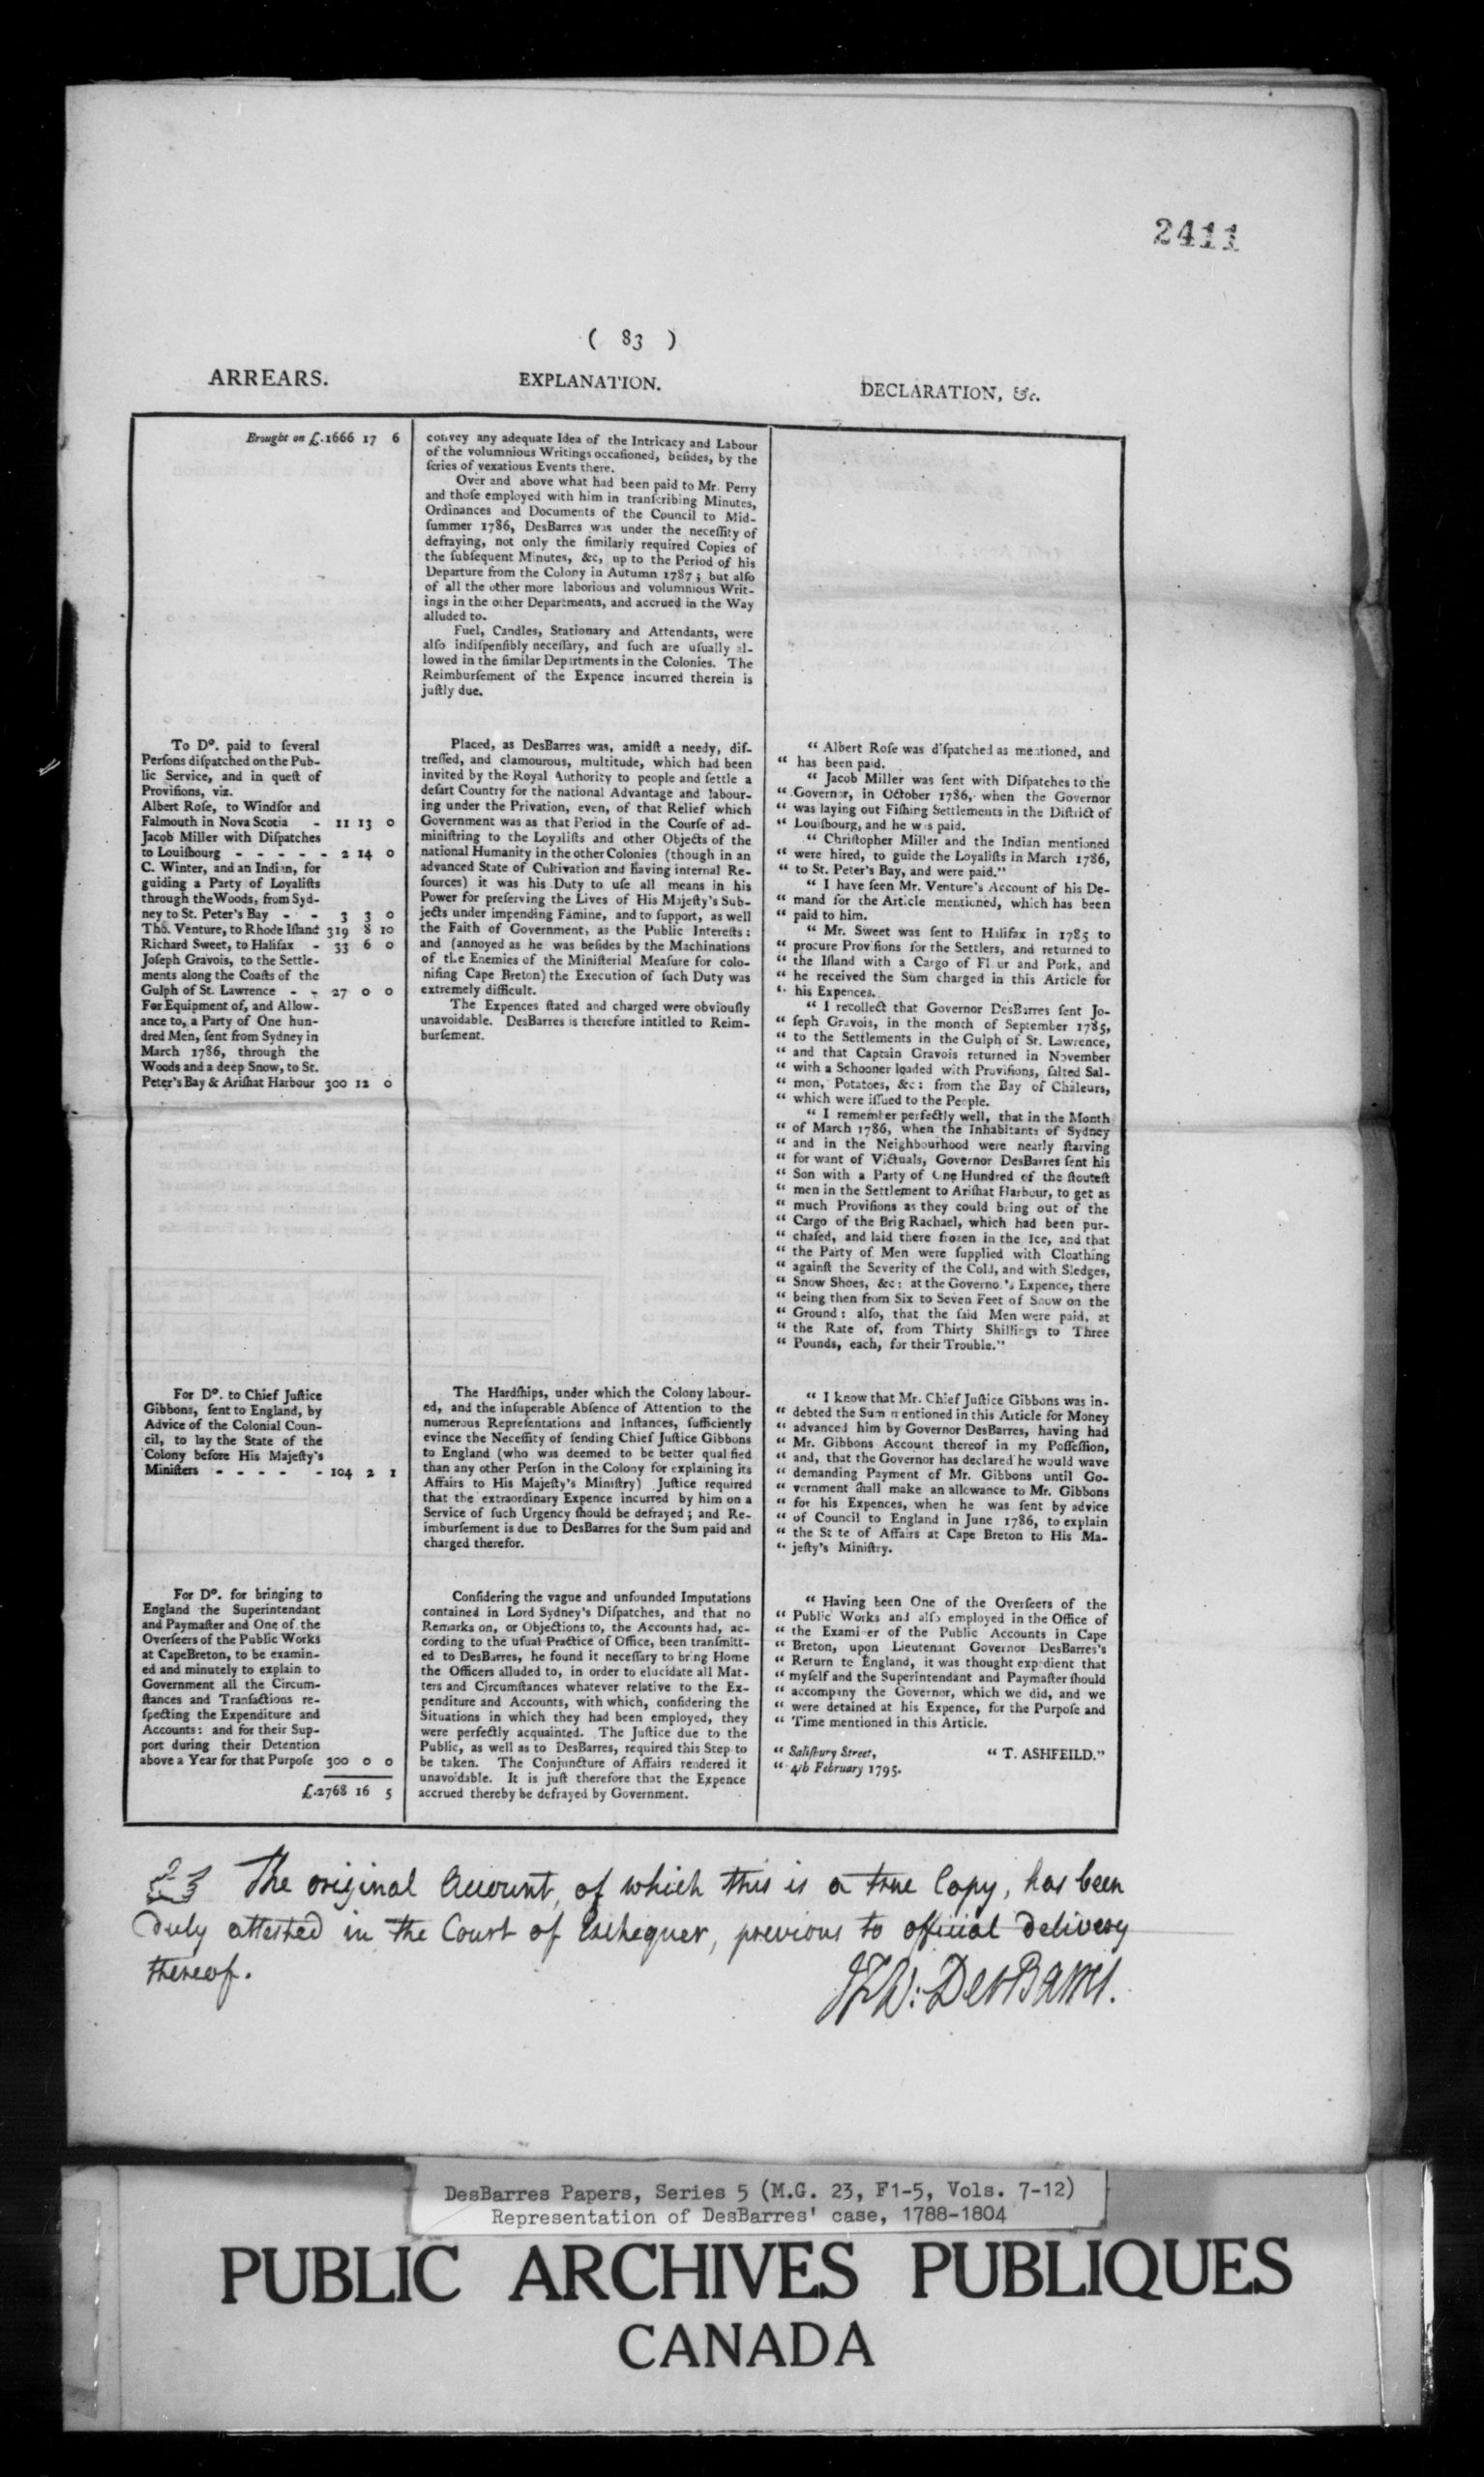 2411
( 83 )
ARREARS.
EXPLANATION.
DECLARATION, &c.
Brought on £.1666 17 6
To Dº. paid to ſeveral
Perſons diſpatched on the Pub-
lic Service, and in queſt of
Proviſions, viz.
Albert Roſe, to Windſor and
Falmouth in Nova Scotia - 11 13 0
Jacob Miller with Diſpatches
to Louiſbourg - - - - - 2 14 0
C. Winter, and an Indian, for
guiding a Party of Loyaliſts
through the Woods, from Syd-
ney to St. Peter's Bay - - 3 3 0
Thô. Venture, to Rhode Iſland 319 8 10
Richard Sweet, to Halifax - 33 6 0
Joſeph Gravois, to the Settle-
ments along the Coaſts of the
Gulph of St. Lawrence - - 27 0 0
For Equipment of, and Allow-
ance to, a Party of One hun-
dred Men, ſent from Sydney in
March 1786, through the
Woods and a deep Snow, to St.
Peter's Bay & Ariſhat Harbour 300 12 0
For Dº. to Chief Juſtice
Gibbons, ſent to England, by
Advice of the Colonial Coun-
cil, to lay the State of the
Colony before His Majeſty's
Miniſters - - - - - 104 2 1
For Dº. for bringing to
England the Superintendant
and Paymaſter and One of the
Overſeers of the Public Works
at CapeBreton, to be examin-
ed and minutely to explain to
Government all the Circum-
ſtances and Tranſactions re-
ſpecting the Expenditure and
Accounts: and for their Sup-
port during their Detention
above a Year for that Purpoſe 300 0 0
£.2768 16 5
convey any adequate Idea of the Intricacy and Labour
of the volumnious Writings occaſioned, beſides, by the
ſeries of vexatious Events there.
Over and above what had been paid to Mr. Perry
and thoſe employed with him in tranſcribing Minutes,
Ordinances and Documents of the Council to Mid-
ſummer 1786, DesBarres was under the neceſſity of
defraying, not only the ſimilarly required Copies of
the ſubſequent Minutes, &c, up to the Period of his
Departure from the Colony in Autumn 1787; but alſo
of all the other more laborious and volumnious Writ-
ings in the other Departments, and accrued in the Way
alluded to.
Fuel, Candles, Stationary and Attendants, were
alſo indiſpenſibly neceſſary, and ſuch are uſually al-
lowed in the ſimilar Departments in the Colonies. The
Reimburſement of the Expence incurred therein is
juſtly due.
Placed, as DesBarres was, amidſt a needy, diſ-
treſſed, and clamourous, multitude, which had been
invited by the Royal Authority to people and ſettle a
deſart Country for the national Advantage and labour-
ing under the Privation, even, of that Relief which
Government was as that Period in the Courſe of ad-
miniſtring to the Loyaliſts and other Objects of the
national Humanity in the other Colonies (though in an
advanced State of Cultivation and having internal Re-
ſources) it was his Duty to uſe all means in his
Power for preſerving the Lives of His Majeſty's Sub-
jects under impending Famine, and to ſupport, as well
the Faith of Government, as the Public Intereſts:
and (annoyed as he was beſides by the Machinations
of the Enemies of the Miniſterial Meaſure for colo-
niſing Cape Breton) the Execution of ſuch Duty was
extremely difficult.
The Expences ſtated and charged were obviouſly
unavoidable. DesBarres is therefore intitled to Reim-
burſement.
The Hardſhips, under which the Colony labour-
ed, and the inſuperable Abſence of Attention to the
numerous Repreſentations and Inſtances, ſufficiently
evince the Neceſſity of ſending Chief Juſtice Gibbons
to England (who was deemed to be better qual fied
than any other Perſon in the Colony for explaining its
Affairs to His Majeſty's Miniſtry) Juſtice required
that the extraordinary Expence incurred by him on a
Service of ſuch Urgency ſhould be defrayed; and Re-
imburſement is due to DesBarres for the Sum paid and
charged therefor.
Conſidering the vague and unfounded Imputations
contained in Lord Sydney's Diſpatches, and that no
Remarks on, or Objections to, the Accounts had, ac-
cording to the uſual Practice of Office, been tranſmitt-
ed to DesBarres, he found it neceſſary to bring Home
the Officers alluded to, in order to elucidate all Mat-
ters and Circumſtances whatever relative to the Ex-
penditure and Accounts, with which, conſidering the
Situations in which they had been employed, they
were perfectly acquainted. The Juſtice due to the
Public, as well as to DesBarres, required this Step to
be taken. The Conjuncture of Affairs rendered it
unavoidable. It is juſt therefore that the Expence
accrued thereby be defrayed by Government.
“ Albert Roſe was diſpatched as mentioned, and
“ has been paid.
“ Jacob Miller was ſent with Diſpatches to the
“ Governor, in October 1786, when the Governor
“ was laying out Fiſhing Settlements in the Diſtrict of
“ Louiſbourg, and he was paid.
“ Chriſtopher Miller and the Indian mentioned
“ were hired, to guide the Loyaliſts in March 1786,
“ to St. Peter's Bay, and were paid.”
“ I have ſeen Mr. Venture's Account of his De-
“ mand for the Article mentioned, which has been
“ paid to him.
“ Mr. Sweet was ſent to Halifax in 1785 to
“ procure Proviſions for the Settlers, and returned to
“ the Iſland with a Cargo of Flour and Pork, and
“ he received the Sum charged in this Article for
“ his Expences.
“ I recollect that Governor DesBarres ſent Jo-
“ ſeph Gravois, in the month of September 1785,
“ to the Settlements in the Gulph of St. Lawrence,
“ and that Captain Gravois returned in November
“ with a Schooner loaded with Proviſions, ſalted Sal-
“ mon, Potatoes, &c: from the Bay of Chaleurs,
“ which were iſſued to the People.
“ I remember perfectly well, that in the Month
“ of March 1786, when the Inhabitants of Sydney
“ and in the Neighbourhood were nearly ſtarving
“ for want of Victuals, Governor DesBarres ſent his
“ Son with a Party of One Hundred of the ſtouteſt
“ men in the Settlement to Ariſhat Harbour, to get as
“ much Proviſions as they could bring out of the
“ Cargo of the Brig Rachael, which had been pur-
“ chaſed, and laid there frozen in the Ice, and that
“ the Party of Men were ſupplied with Cloathing
“ againſt the Severity of the Cold, and with Sledges,
“ Snow Shoes, &c: at the Governor's Expence, there
“ being then from Six to Seven Feet of Snow on the
“ Ground: alſo, that the ſaid Men were paid, at
“ the Rate of, from Thirty Shillings to Three
“ Pounds, each, for their Trouble.”
“ I know that Mr. Chief Juſtice Gibbons was in-
“ debted the Sum mentioned in this Article for Money
“ advanced him by Governor DesBarres, having had
“ Mr. Gibbons Account thereof in my Poſſeſſion,
“ and, that the Governor has declared he would wave
“ demanding Payment of Mr. Gibbons until Go-
“ vernment ſhall make an allowance to Mr. Gibbons
“ for his Expences, when he was ſent by advice
“ of Council to England in June 1786, to explain
“ the State of Affairs at Cape Breton to His Ma-
“ jeſty's Miniſtry.
“ Having been One of the Overſeers of the
“ Public Works and alſo employed in the Office of
“ the Examiner of the Public Accounts in Cape
“ Breton, upon Lieutenant Governor DesBarres's
“ Return to England, it was thought expedient that
“ myſelf and the Superintendant and Paymaſter ſhould
“ accompany the Governor, which we did, and we
“ were detained at his Expence, for the Purpoſe and
“ Time mentioned in this Article.
“ Saliſbury Street, “ T. ASHFEILD.”
“ 4th February 1795.
The original Account, of which this is a true Copy, has been
Duly attested in the Court of Exchequer, previous to official delivery
thereof.
JFW: DesBarres.
DesBarres Papers, Series 5 (M.G. 23, F1-5, Vols. 7-12)
Representation of DesBarres' case, 1788-1804
PUBLIC ARCHIVES PUBLIQUES
CANADA